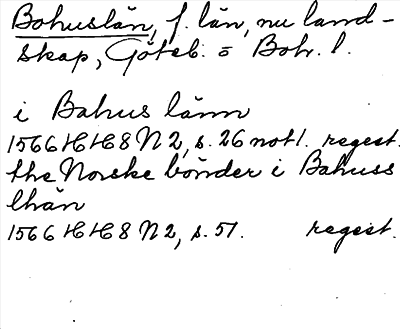 Bohuslän, f. län, nu land-
skap, Göteb. o Boh. l.
i Bahus länn
1566 HH8 N 2, s. 26 not 1. regest.
the Norske bönder i Bahuss
lhän
1566 HH8 N 2, s. 51. regest.